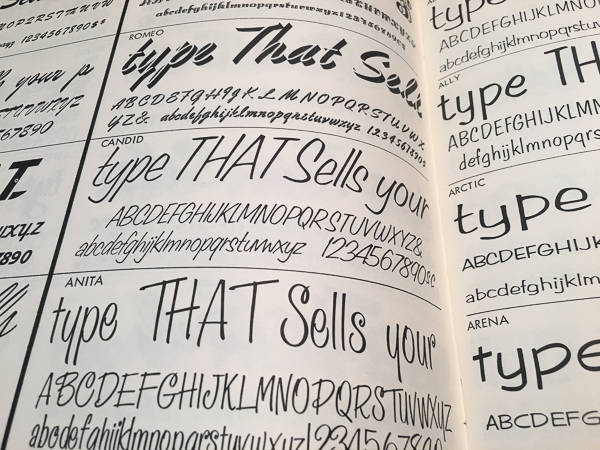 1234567890
your
1234567890
1234567890
ROMEO
type That Sell
ABCDEFGHIJKLMNOPQRSTUVWX
YZ& abcdefghijklmnopqrstuvwxyz 1234567890$
CANDID
type THAT Sells your
ABCDEFGHIJKLMNOPQRSTUVWXYZ&
abcdefghijklmnopqrstuvwxyz 1234567890$¢
ANITA
type THAT Sells your
ABCDEFGHIJKLMNOPQRSTUVWXYZ
abcdefghijklmnopqrstuvwxyz1234567890
type
ABCDEFGHIJK
abcdefghijklmnop
ALLY
type TH
ABCDEFGHIJKLMN
defghijklmnopqrs
ARCTIC
type
ABCDEFGHIJK
abcdefghijklmn
ARENA
type
ABCDEFG